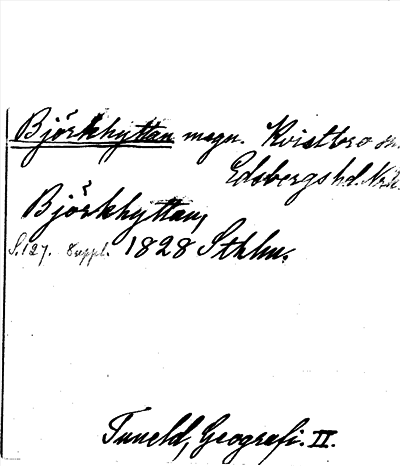 Björkhyttan magn. Kvistbro sn.
Edsbergs hd. Nrk.
Björkhyttan,
S. 127. Suppl. 1828 Sthlm.
Tuneld, Geografi. II.